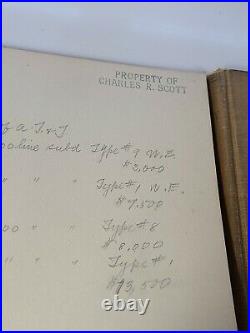 PROPERTY OF
CHARLES R. SCOTT
& T
subd Type #9 W.E.
$3,000
" " " Type #1 N.E.
$7,500
00 " " Type #8
$8,000
" " Type #1
$13,500